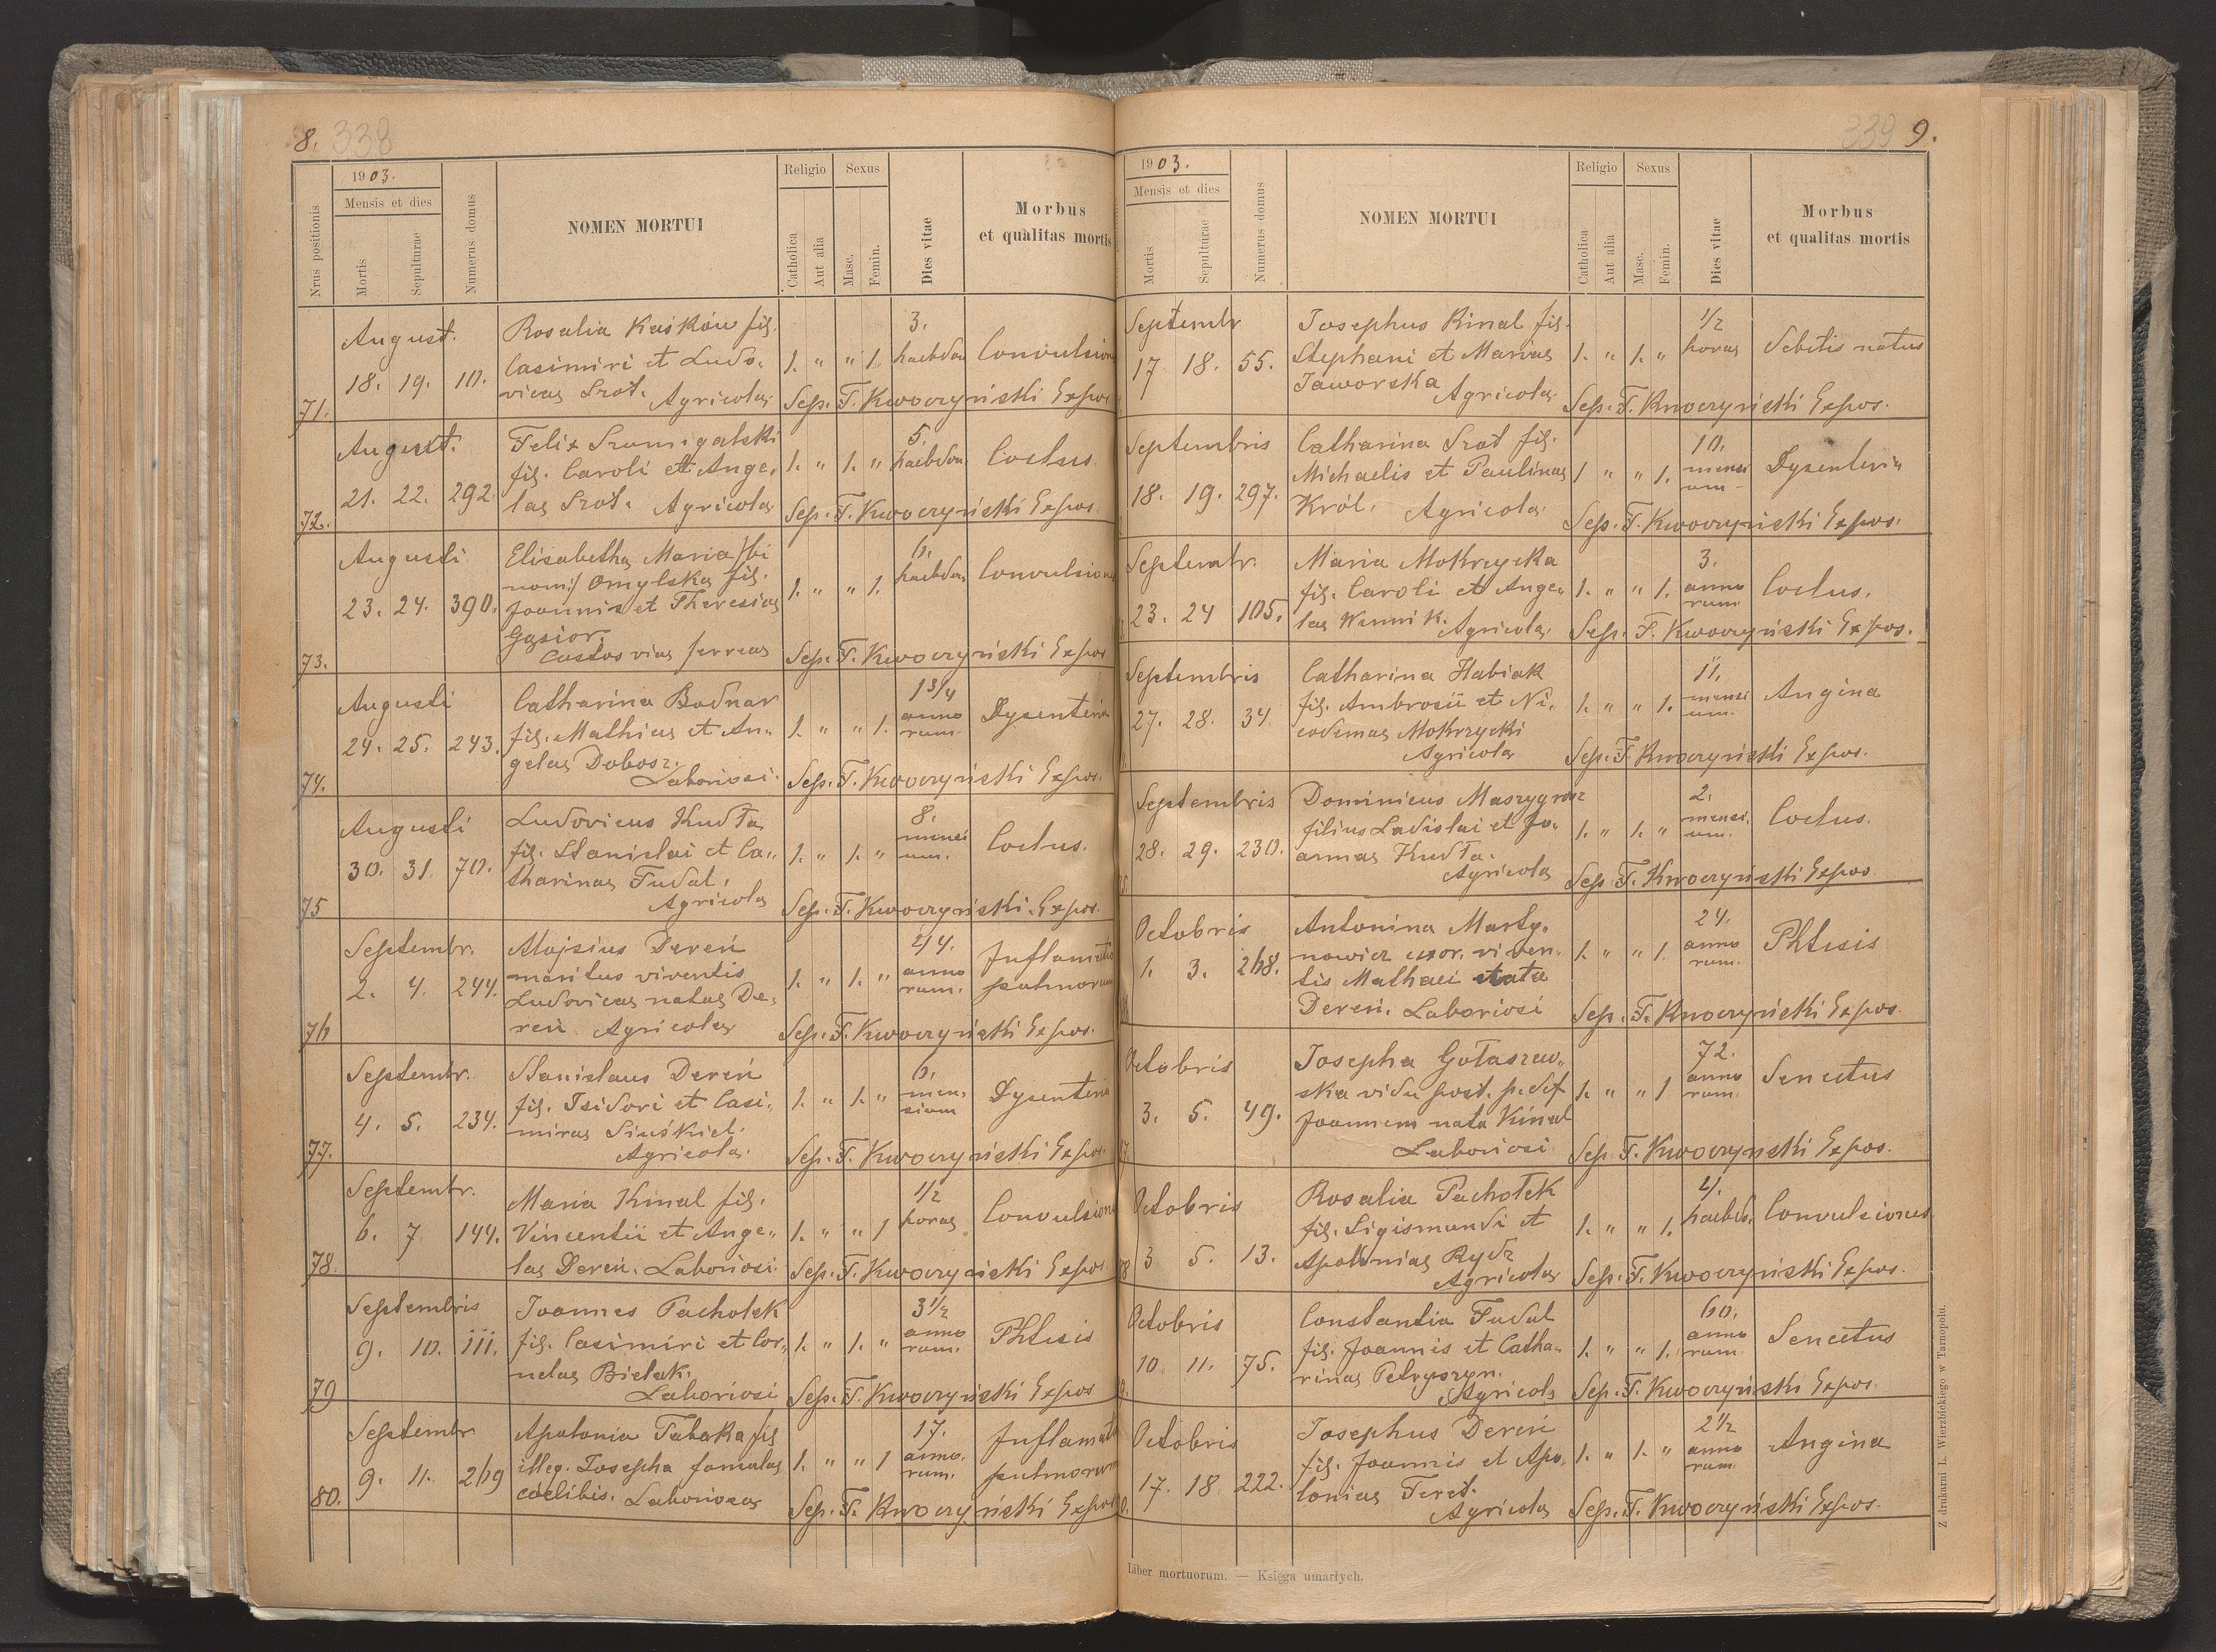 8. 338
1903.
Mensis et dies
Nrus positionis
Mortis
Sepulturae
Numerus domus
NOMEN MORTUI
Religio
Catholica
Aut alia
Sexus
Masc.
Femin.
Dies vitae
Morbus
et qualitas mortis
71.
August.
18. 19. 10.
Rosalia Kaśków fil.
Casimiri et Ludo„
vicae Srot. Agricolae
1. „ „ 1.
3.
haebdom
Convulsion
Sep. F. Kwoczyński Expos
72.
August.
21. 22. 292.
Felix Szumigalski
fil. Caroli et Ange„
lae Srot. Agricolae
1. „ 1. „
5.
haebdom
Coclus.
Sep. F. Kwoczyński Expos.
73.
Augusti
23. 24. 390.
Elisabetha Maria /bi
nom:/ Omylska fil.
Joannis et Theresiae
Gąsior.
Custos viae ferreae
1. „ „ 1.
6.
haebdom
Convulsione
Sep. F. Kwoczyński Expos
74.
Augusti
24. 25. 243.
Catharina Bodnar
fil. Mathiae et An„
gelae Dobosz.
Laboriosi.
1. „ „ 1.
1 3/4
anno
rum.
Dysenteria
Sep. F. Kwoczyński Expos.
75
Augusti
30. 31. 70.
Ludovicus Kudła
fil. Stanislai et Ca„
tharinae Fudal.
Agricolae
1. „ 1. „
8.
mensi
um.
Coclus.
Sep. F. Kwoczyński Expos.
76
Septembr.
2. 4. 244.
Alojsius Dereń
maritus viventis
Ludovicae natae De„
reń Agricolae
1. „ 1. „
44.
anno
rum.
Inflamatio
pulmorum
Sep. F. Kwoczyński Expos.
77.
Septembr.
4. 5. 234.
Stanislaus Dereń
fil. Isidori et Casi„
mirae Siuśkiel.
Agricolae.
1. „ 1. „
6.
men„
sium
Dysenteria
Sep. F. Kwoczyński Expos.
78.
Septembr.
6. 7. 144.
Maria Kinal fil.
Vincentii et Ange„
lae Dereń. Laboriosi.
1. „ „ 1
1/2
horae
Convulsione
Sep. F. Kwoczyński Expos.
79
Septembris
9. 10. 111.
Joannes Pacholek
fil. Casimiri et Cor„
nelae Bielak.
Laboriosi
1. „ 1. „
3 1/2
anno
rum.
Phtisis
Sep. F. Kwoczyński Expos
80.
Septembr
9. 11. 269
Apolonia Tabaka fil
illeg. Josepha famulae
coelibis. Laboriosae
1. „ „ 1
17.
anno.
rum.
Inflamati
pulmorum
Sep. F. Kwoczyński Expos
339 9.
1903.
Mensis et dies
Mortis
Sepulturae
Numerus domus
NOMEN MORTUI
Religio
Catholica
Aut alia
Sexus
Masc.
Femin.
Dies vitae
Morbus
et qualitas mortis
Septembr
17 18. 55.
Josephus Kinal fil.
Stephani et Mariae
Jaworska
Agricolae
1. „ 1. „
1/2
horae
Debilis natus
Sep. F. Kwoczyński Expos.
Septembris
18. 19. 297.
Catharina Srot fil.
Michaelis et Paulinae
Król. Agricolae.
1 „ „ 1.
10.
mensi
um
Dysenteria
Sep. F. Kwoczyński Expos.
Septembr.
23. 24 105.
Maria Mokrzycka
fil. Caroli et Ange„
lae Winnik. Agricolae.
1. „ „ 1.
3.
anno
rum
Coclus.
Sep. F. Kwoczyński Expos.
Septembris
27. 28. 34.
Catharina Habiak
fil. Ambrosii et Ni„
codemae Mokrzycki
Agricolae
1. „ „ 1.
11.
mensi
um.
Angina
Sep. F. Kwoczyński Expos.
Septembris
28. 29. 230.
Dominicus Maszygrosz
filius Ladislai et Jo„
annae Kudła.
Agricolae
1. „ 1. „
2.
mensi.
um.
Coclus.
Sep. F. Kwoczyński Expos.
Octobris
1. 3. 268.
Antonina Marty„
nowicz uxor. viven„
tis Mathaei nata
Dereń. Laboriosi
1. „ „ 1.
24.
anno
rum.
Phtisis
Sep. F. Kwoczyński Expos.
Octobris
3. 5. 49.
Josepha Gołaszew„
ska vidu post. p. def
Joannem nata Kinal
Laboriosi
1. „ „ 1
72.
anno
rum.
Senectus
Sep. F. Kwoczyński Expos.
Octobris
3 5. 13.
Rosalia Pachołek
fil. Sigismundi et
Apoloniae Rydz
Agricolae
1. „ „ 1.
4.
haebdo.
Convulsiones
Sep. F. Kwoczyński Expos.
Octobris
10 11. 75.
Constantia Fudal
fil. Joannis et Catha„
rinae Petryszyn.
Agricolae
1. „ „ 1.
60.
anno
rum.
Senectus
Sep. F. Kwoczyński Expos.
Octobris
17. 18. 222.
Josephus Dereń
fil. Joannis et Apo„
loniae Feret.
Agricolae
1. „ 1. „
2 1/2
anno
rum.
Angina
Sep. F. Kwoczyński Expos.
Liber mortuorum. — Księga umarłych.
Z drukarni L. Wierzbickiego w Tarnopolu.